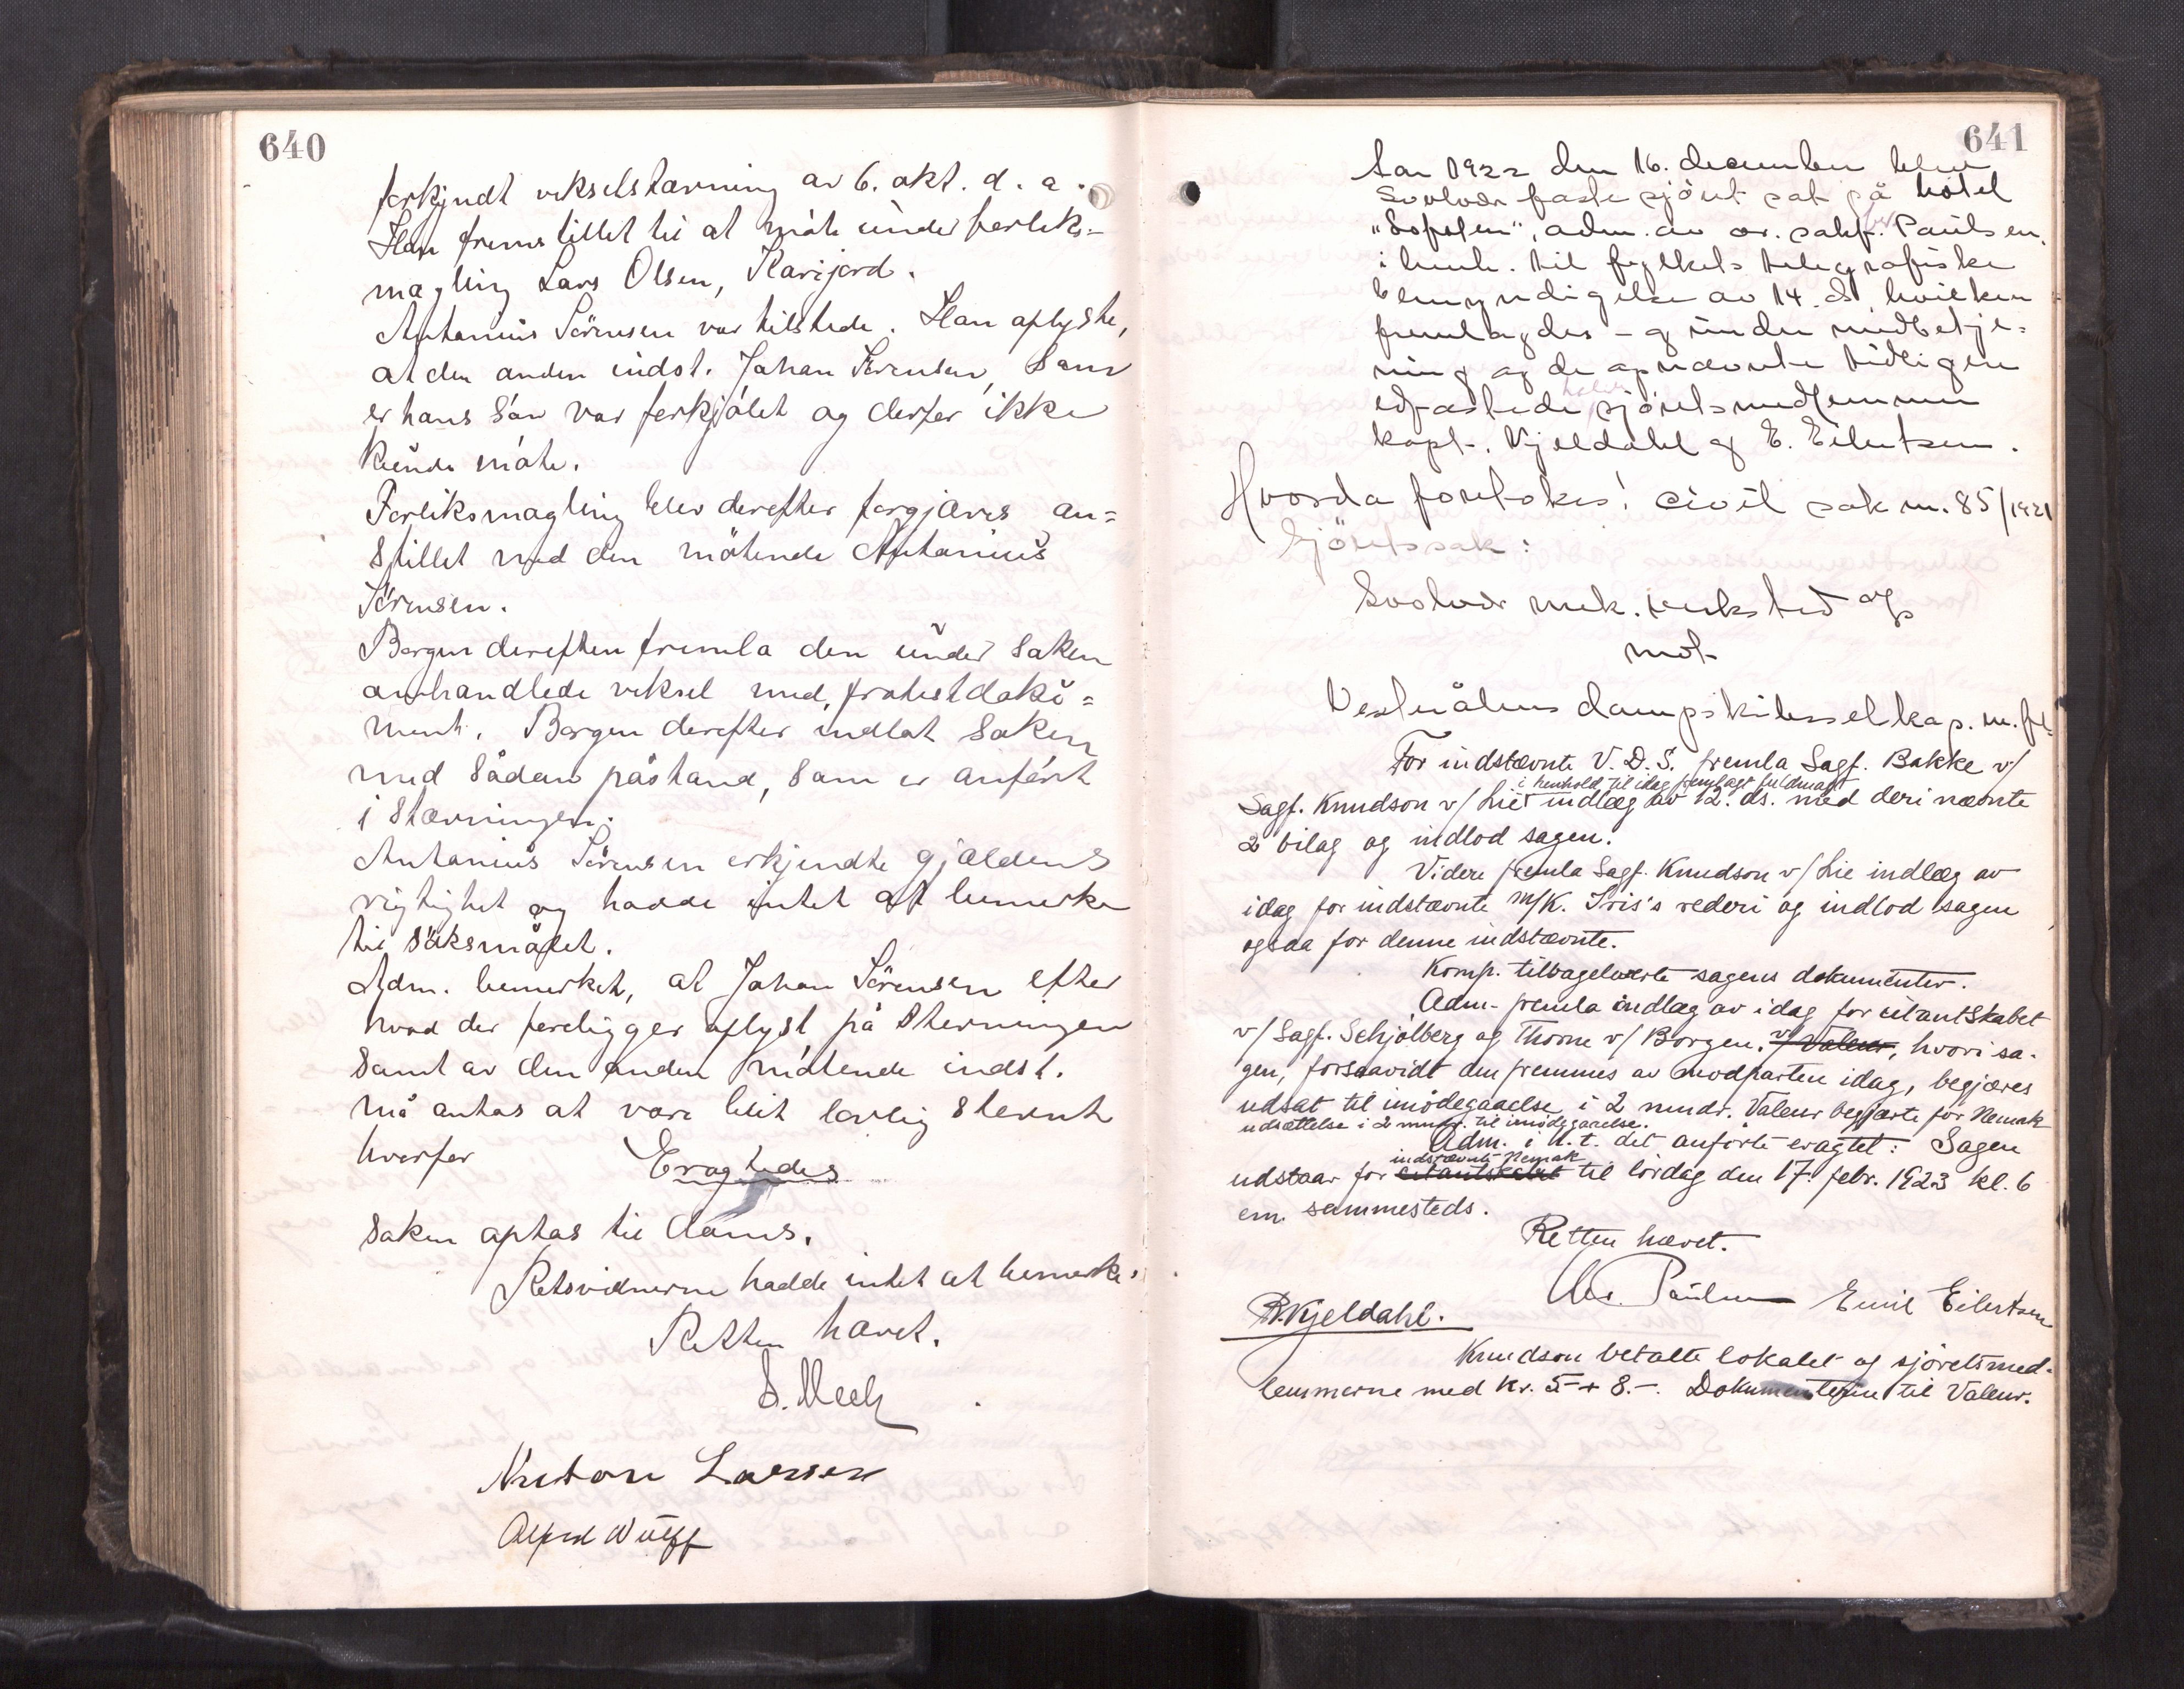 640
forkyndt vekselstævning av 6. okt. d. a.
Han fremstillet til at møte under forliks-
mægling Lars Olsen, Karijord.
Antonius Sörensen var tilstede. Han oplyste,
at den anden indst. Johan Sörensen, som
er hans sön var forkjölet og derfor ikke
kunde möte.
Forliksmægling blev derefter forgjæves an=
stillet med den mötende Antonius
Sörensen.
Borgen derefter fremla den under saken
omhandlede veksel med protestdoku=
ment. Borgen derefter indlot saken
med sådan påstand, som er anfört
i stævningen.
Antonius Sörensen erkjendte gjældens
rigtighet og hadde intet at bemerke
til söksmålet.
Adm. bemerket, at Johan Sörensen efter
hvad der foreligger oplyst på stevningen
samt av den anden mötende indst.
må antas at være blit lovlig stevnt
hvorfor
Eragtedes
saken optas til doms.
Retsvidnerne hadde intet at bemerke.
Retten hævet.
S. Mech
Anton Larsen
Alfred Wulff
641
Aar 1922 den 16. december blev
Svolvær faste sjöret sat på hotel
"Lofoten", adm. av or. sakf. Paulsen,
i henh. til fylkets telegrafiske
bemyndigelse av 14. ds. hvilken
fremlagdes - og under medbetje=
ning av de opnævnte tidligere
edfæstede sjöretsmedlemmer
kapt. Kjeldahl og E. Eilertsen.
Hvorda foretokes: civil sak nr. 85/1921
Sjöretssak:
Svolvær mek. verksted
mot
Vesteraalens dampskibsselskap. m. fl.
For indstævnte V. D. S. fremla Sagf. Bakke v/
i henhold til idag fremlagt fuldmagt
Sagf. Knudson v/ Lie indlæg av 12. ds. med deri nævnte
2 bilag og indlod sagen.
Videre fremla Sagf. Knudson v/ Lie indlæg av
idag for indstævnte M/K. Iris's rederi og indlod sagen
ogsaa for denne indstævnte.
Komp. tilbageleverte sagens dokumenter.
Adm. fremla indlæg av idag for citantskabet
v/ Sagf. Schjölberg og Thorne v/ Borgen, v/ Valeur, hvori sa-
gen, forsaavidt den fremmes av modparten idag, begjæres
udsat til imödegaaelse i 2 mndr. Valeur begjærte for Nemak
udsættelse i 2 mndr. til imödegaaelse.
Adm. i h. t. det anförte eragtet: Sagen
indstævnte Nemak
udstaar for citantskabet til lördag den 17. febr. 1923 kl. 6
em. sammesteds.
Retten hævet.
Chr. Paulsen Emil Eilertsen
R. Kjeldahl.
Knudson betalte lokalet og sjöretsmed-
lemmerne med kr. 5.- + 8.-. Dokumenterne til Valeur.